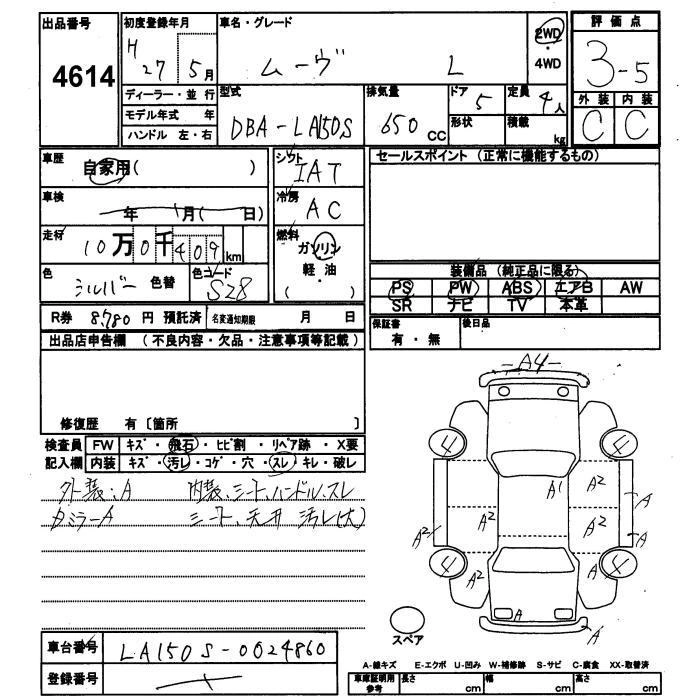 出品番号 4614
初度登録年月 H 27 5月
車名・グレード ムーヴ L
2WD・4WD
評価点 3-5
外装 C 内装 C
ディーラー・並行
モデル年式 年
ハンドル 左・右
型式 DBA-LA150S
排気量 650 CC
ドア 5
形状
定員 4人
積載 kg
車歴 自家用( )
車検 年 月( 日)
走行 10万0千409km
色 シルバー 色替
色コード S28
シフト IAT
冷房 AC
燃料 ガソリン
軽・油
( )
セールスポイント(正常に機能するもの)
装備品(純正品に限る)
PS PW ABS エアB AW
SR ナビ TV 本革
保証書 有・無
後日品
R券 8,780 円 預託済 名変通知期限 月 日
出品店申告欄(不良内容・欠品・注意事項等記載)
修復歴 有〔箇所 〕
検査員 FW キズ・飛石・ヒビ割・リペア跡・X要
記入欄 内装 キズ・汚レ・コゲ・穴・スレ・キレ・破レ
外装、A 内装、シート、ハンドル、スレ
ミラーA シート、天井 汚レ(大)
A4
4 4
A¹ A² A
A² A² A² A
4 A² A 4
A A
スペア
車台番号 LA150S-0024860
登録番号
A-線キズ E-エクボ U-凹み W-補修跡 S-サビ C-腐食 XX-取替済
車庫証明用参考 長さ cm 幅 cm 高さ cm